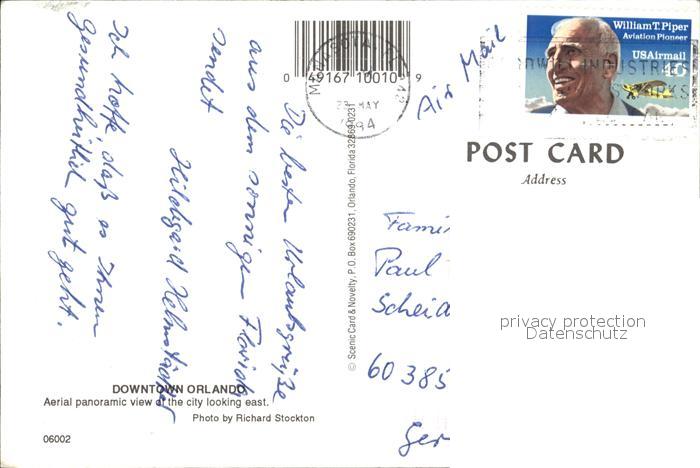 William T. Piper
Aviation Pioneer
USAirmail
40
Air Mail
0 49167 10010 9
MAY
94
POST CARD
Address
Die besten Urlaubsgrüße
aus dem sonnigen Florida
sendet
Hildegard
Ich hoffe, daß es Ihnen
gesundheitlich gut geht.
© Scenic Card & Novelty, P.O. Box 690231, Orlando, Florida 32869-0231
Fami
Paul
Scheid
60385
Ger
privacy protection
Datenschutz
DOWNTOWN ORLANDO
Aerial panoramic view of the city looking east.
Photo by Richard Stockton
06002